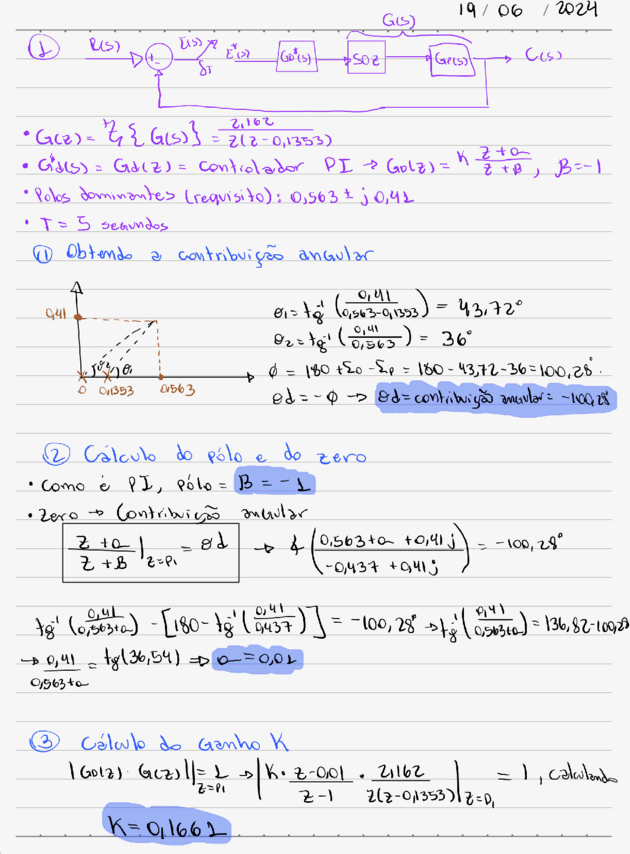 19 / 06 / 2024
G(s)
1 R(s) + - E(s) δT E*(s) GD*(s) SOZ GP(s) C(s)
• G(z) = Z { G(s) } = 2,162 / z(z-0,1353)
• G*d(s) = Gd(z) = controlador PI → GD(z) = K z+a / z+B , B=-1
• Polos dominantes (requisito): 0,563 ± j 0,41
• T = 5 segundos
① Obtendo a contribuição angular
0,41
θ2 θ1
0 0,1353 0,563
θ1 = tg⁻¹ (0,41 / 0,563-0,1353) = 43,72°
θ2 = tg⁻¹ (0,41 / 0,563) = 36°
φ = 180 + Σ0 - Σp = 180 - 43,72 - 36 = 100,28°.
θd = -φ → θd = contribuição angular = -100,28°
② Cálculo do pólo e do zero
• Como é PI, pólo = B = -1
• Zero → Contribuição angular
z+a / z+B |z=P1 = θd → ∡ (0,563+a +0,41j / -0,437 +0,41j) = -100,28°
tg⁻¹ (0,41 / 0,563+a) - [180 - tg⁻¹ (0,41 / 0,437)] = -100,28° → tg⁻¹ (0,41 / 0,563+a) = 136,82-100,28
→ 0,41 / 0,563+a = tg(36,54) ⇒ a = 0,01
③ Cálculo do Ganho K
|GD(z) · G(z)| |z=P1 = 1 → |K · z-0,01 / z-1 · 2,162 / z(z-0,1353)| z=P1 = 1, calculando
K = 0,1661